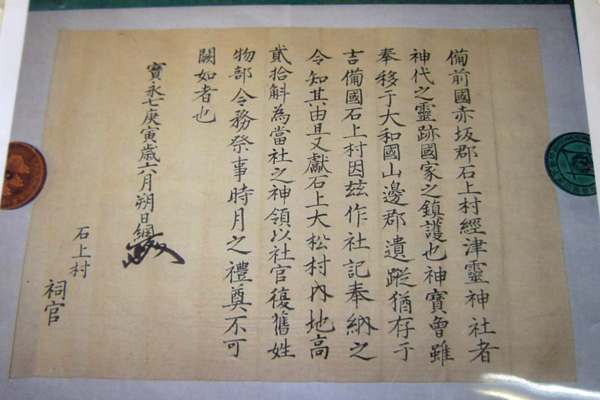 備前國赤坂郡石上村經津靈神社者
神代之靈跡國家之鎮護也神寶曾雖
奉移于大和國山邊郡遺蹤猶存于
吉備國石上村因玆作社記奉納之
令知其由且又獻石上大松村內地高
貳拾斛為當社之神領以社官復舊姓
物部令務祭事時月之禮奠不可
闕如者也
寶永七庚寅歲六月朔日綱政
石上村
祠官